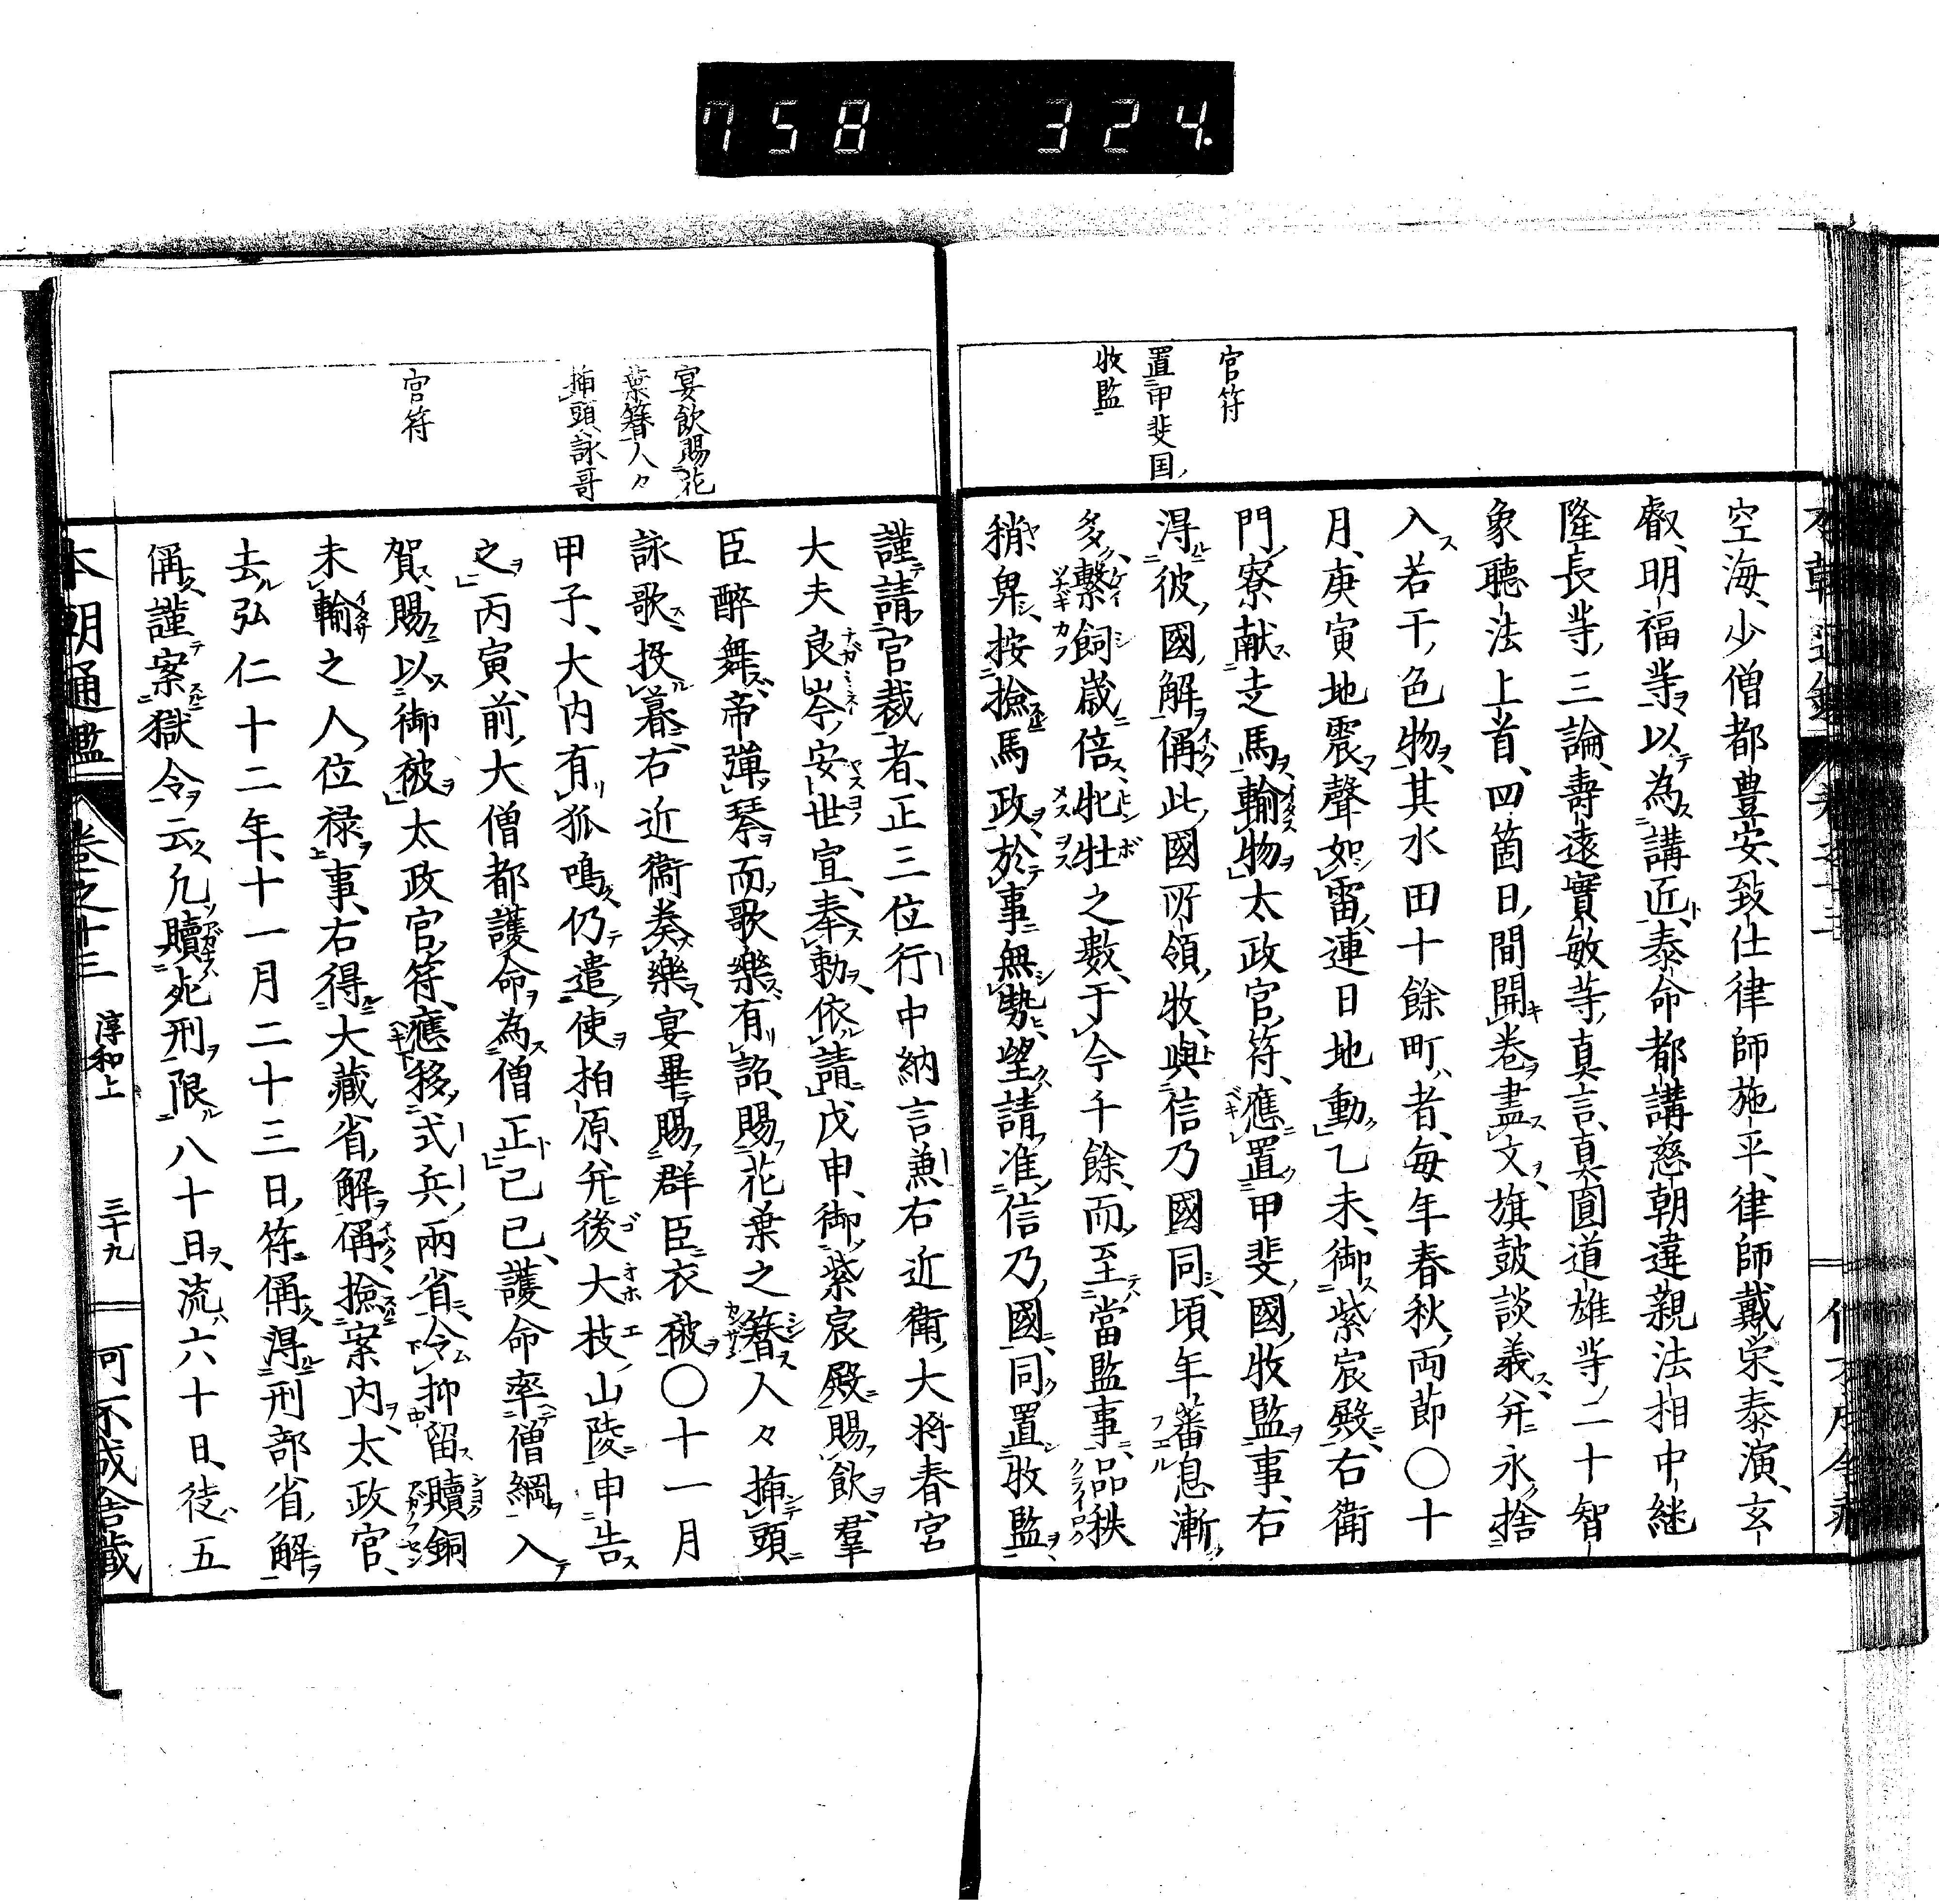 758 324.
官符
置甲斐国
牧監
空海、少僧都豊安、致仕律師施平、律師戴栄、泰演、玄
叡、明福等以為講匠、泰命都講慈朝違親法相中継
隆長等、三論、壽遠實敏等、真言、真圓道雄等二十智
象聽法上首、四箇日、間開巻盡文、旗鼓談義并永捨
入若干色物、其水田十餘町者、毎年春秋両節〇十
月、庚寅地震聲如雷、連日地動乙未、御紫宸殿、右衛
門寮献走馬、輸物太政官符、應置甲斐國牧監事、右
得彼國解偁此國所領牧、與信乃國同、頃年蕃息漸
多、繫飼歳倍、牝牡之數、于今千餘、而至當監事、品秩
稍卑、按撿馬政、於事無勢、望請准信乃國、同置牧監、
宴飲賜花
葉簪人々
挿頭詠哥
官符
謹請官裁者、正三位行中納言兼右近衛大将春宮
大夫良岑安世宣、奉勅依請戊申、御紫宸殿賜飲、羣
臣醉舞、帝彈琴而歌樂、有詔、賜花葉之簪人々挿頭
詠歌、投暮右近衛奏樂、宴畢賜群臣衣被〇十一月
甲子、大内有狐鳴、仍遣使柏原并後大枝山陵申告
之丙寅、前大僧都護命為僧正己巳、護命率僧綱入
賀、賜以御被太政官符、應移式兵兩省令抑留贖銅
未輸之人位禄事、右得大藏省解偁撿案内太政官、
去弘仁十二年、十一月二十三日符偁得刑部省解
偁謹案獄令云凡贖死刑限八十日、流六十日、徒五
本朝通鑑
卷之十三
淳和上
三十九
可不成舎藏